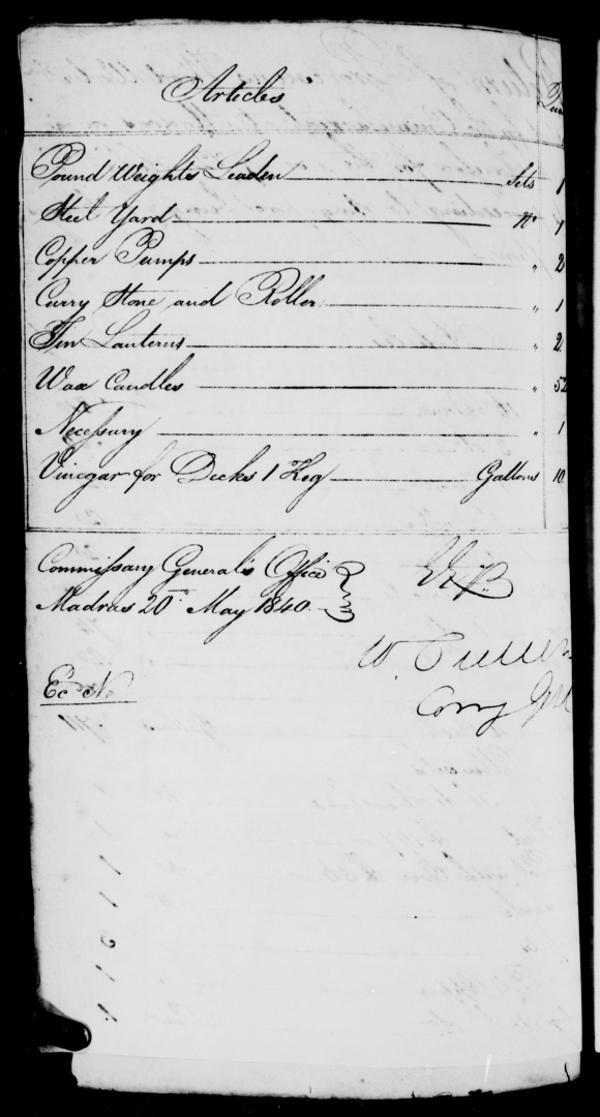 Articles
Pound Weights Leaden Sets 1
Steel Yard No 1
Copper Pumps " 2
Curry Stone and Roller " 1
Tin Lanterns " 2
Wax Candles " 52
Necessary " 1
Vinegar for Decks 1 Keg Gallons 10
Commissary General's Office
Madras 20th May 1840
W.
Comy